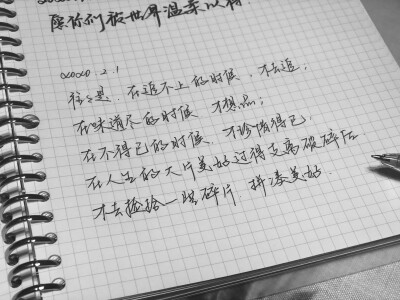 愿你们被世界温柔以待
2020.2.1
往々是，在追不上的时候，不去追；
在味道尽的时候，不想品；
在不得已的时候，不珍惜得已，
在人生的大片美好过得支离破碎后
才去捡拾一些碎片，拼凑美好.